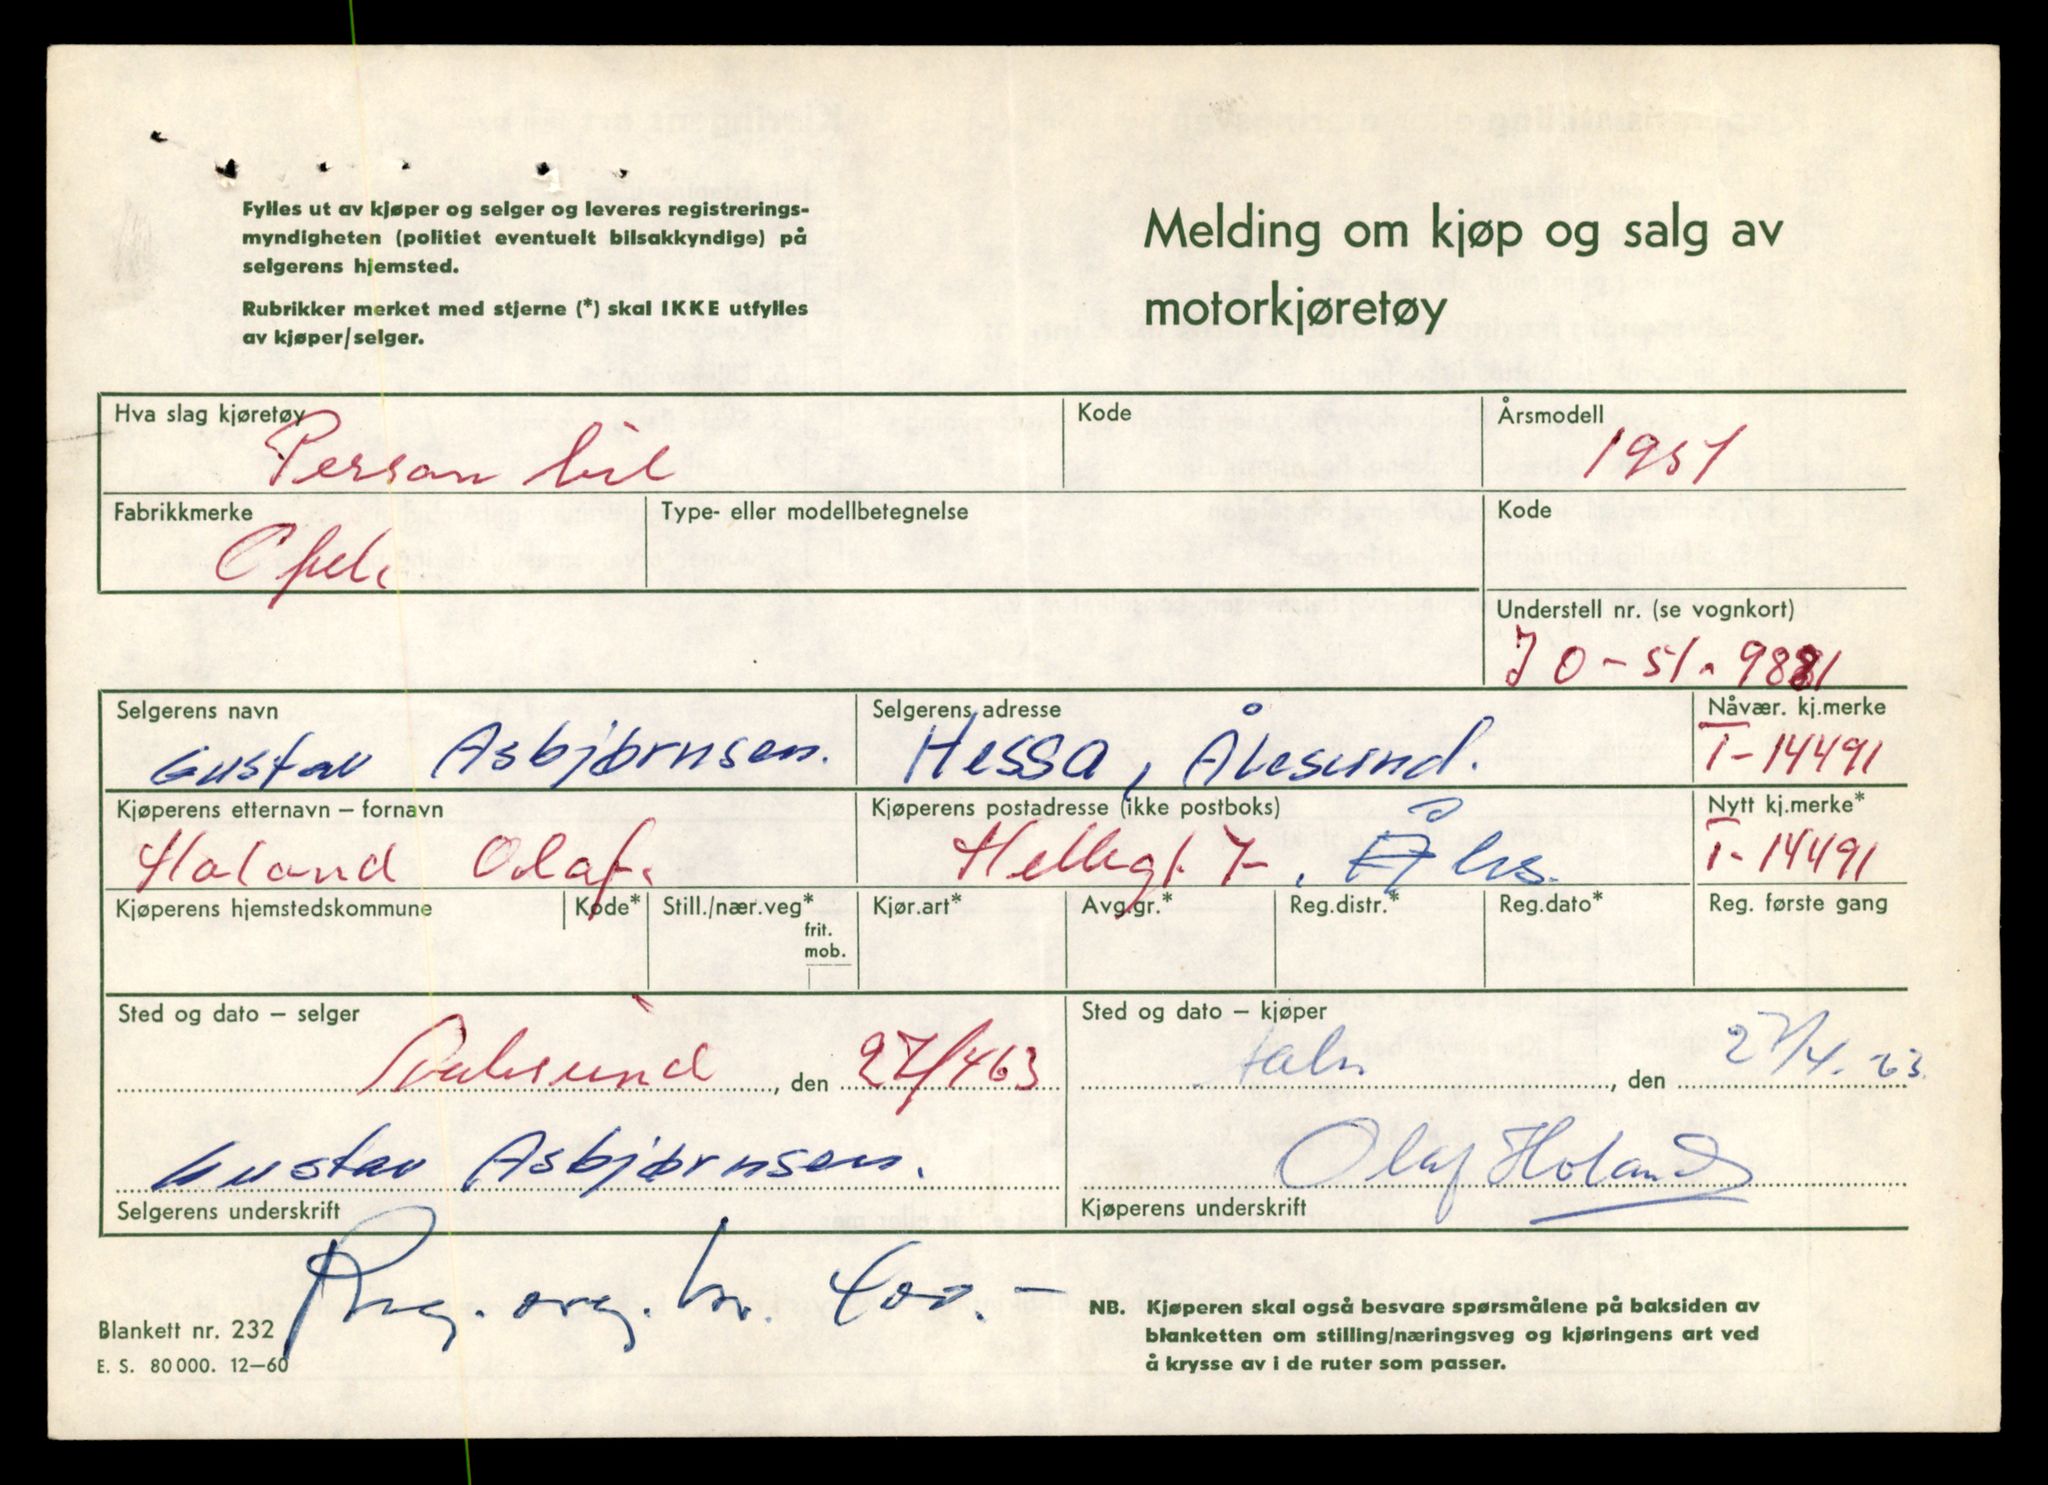 Fylles ut av kjøper og selger og leveres registrerings-
myndigheten (politiet eventuelt bilsakkyndige) på
selgerens hjemsted.
Rubrikker merket med stjerne (*) skal IKKE utfylles
av kjøper/selger.
Melding om kjøp og salg av
motorkjøretøy
Hva slag kjøretøy Kode Årsmodell
Person bil 1951
Fabrikkmerke Type- eller modellbetegnelse Kode
Opel.
Understell nr. (se vognkort)
J 0-51-9881
Selgerens navn Selgerens adresse Nåvær. kj.merke
Gustav Asbjørnsen. Hessa, Ålesund. T-14491
Kjøperens etternavn – fornavn Kjøperens postadresse (ikke postboks) Nytt kj.merke*
Holand Olaf. T-14491
Kjøperens hjemstedskommune Kode* Still./nær.veg* Kjør.art* Avg.gr.* Reg.distr.* Reg.dato* Reg. første gang
frit.
mob.
Sted og dato – selger Sted og dato – kjøper
Aalesund, den 27/4 63 Aales, den 27/4. 63.
Gustav Asbjørnsen. Olaf Holand
Selgerens underskrift Kjøperens underskrift
Reg. avg. kr. 400.-
Blankett nr. 232
E. S. 80 000. 12–60
NB. Kjøperen skal også besvare spørsmålene på baksiden av
blanketten om stilling/næringsveg og kjøringens art ved
å krysse av i de ruter som passer.